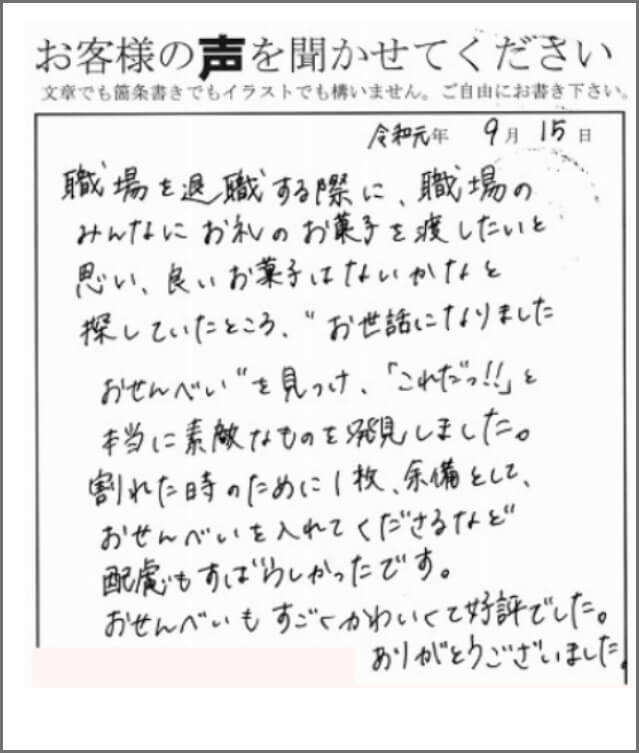 お客様の声を聞かせてください
文章でも箇条書きでもイラストでも構いません。ご自由にお書き下さい。
令和元年 9月 15日
職場を退職する際に、職場の
みんなにお礼のお菓子を渡したいと
思い、良いお菓子はないかなと
探していたところ、"お世話になりました
おせんべい"を見つけ、「これだっ!!」と
本当に素敵なものを発見しました。
割れた時のために1枚、余備として、
おせんべいを入れてくださるなど
配慮もすばらしかったです。
おせんべいもすごくかわいくて好評でした。
ありがとうございました。